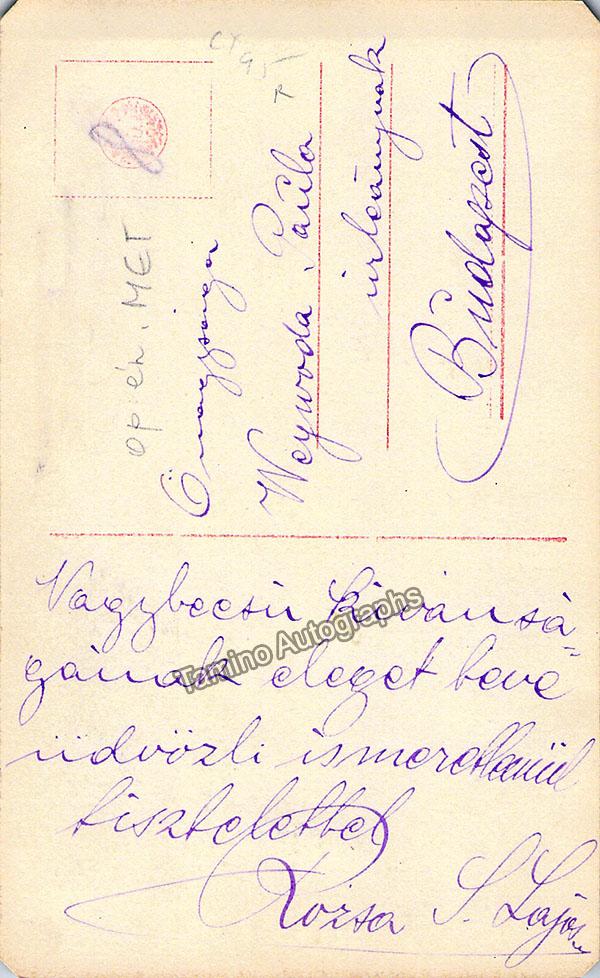 Őnagysága
Weywoda Paula
úrleánynak
Budapest
op én. MET
8
Nagybecsü kiván sá
gának eleget tevé
üdvözli ismeretlenül
tisztelettel
Rózsa S. Lajos
Tamino Autographs